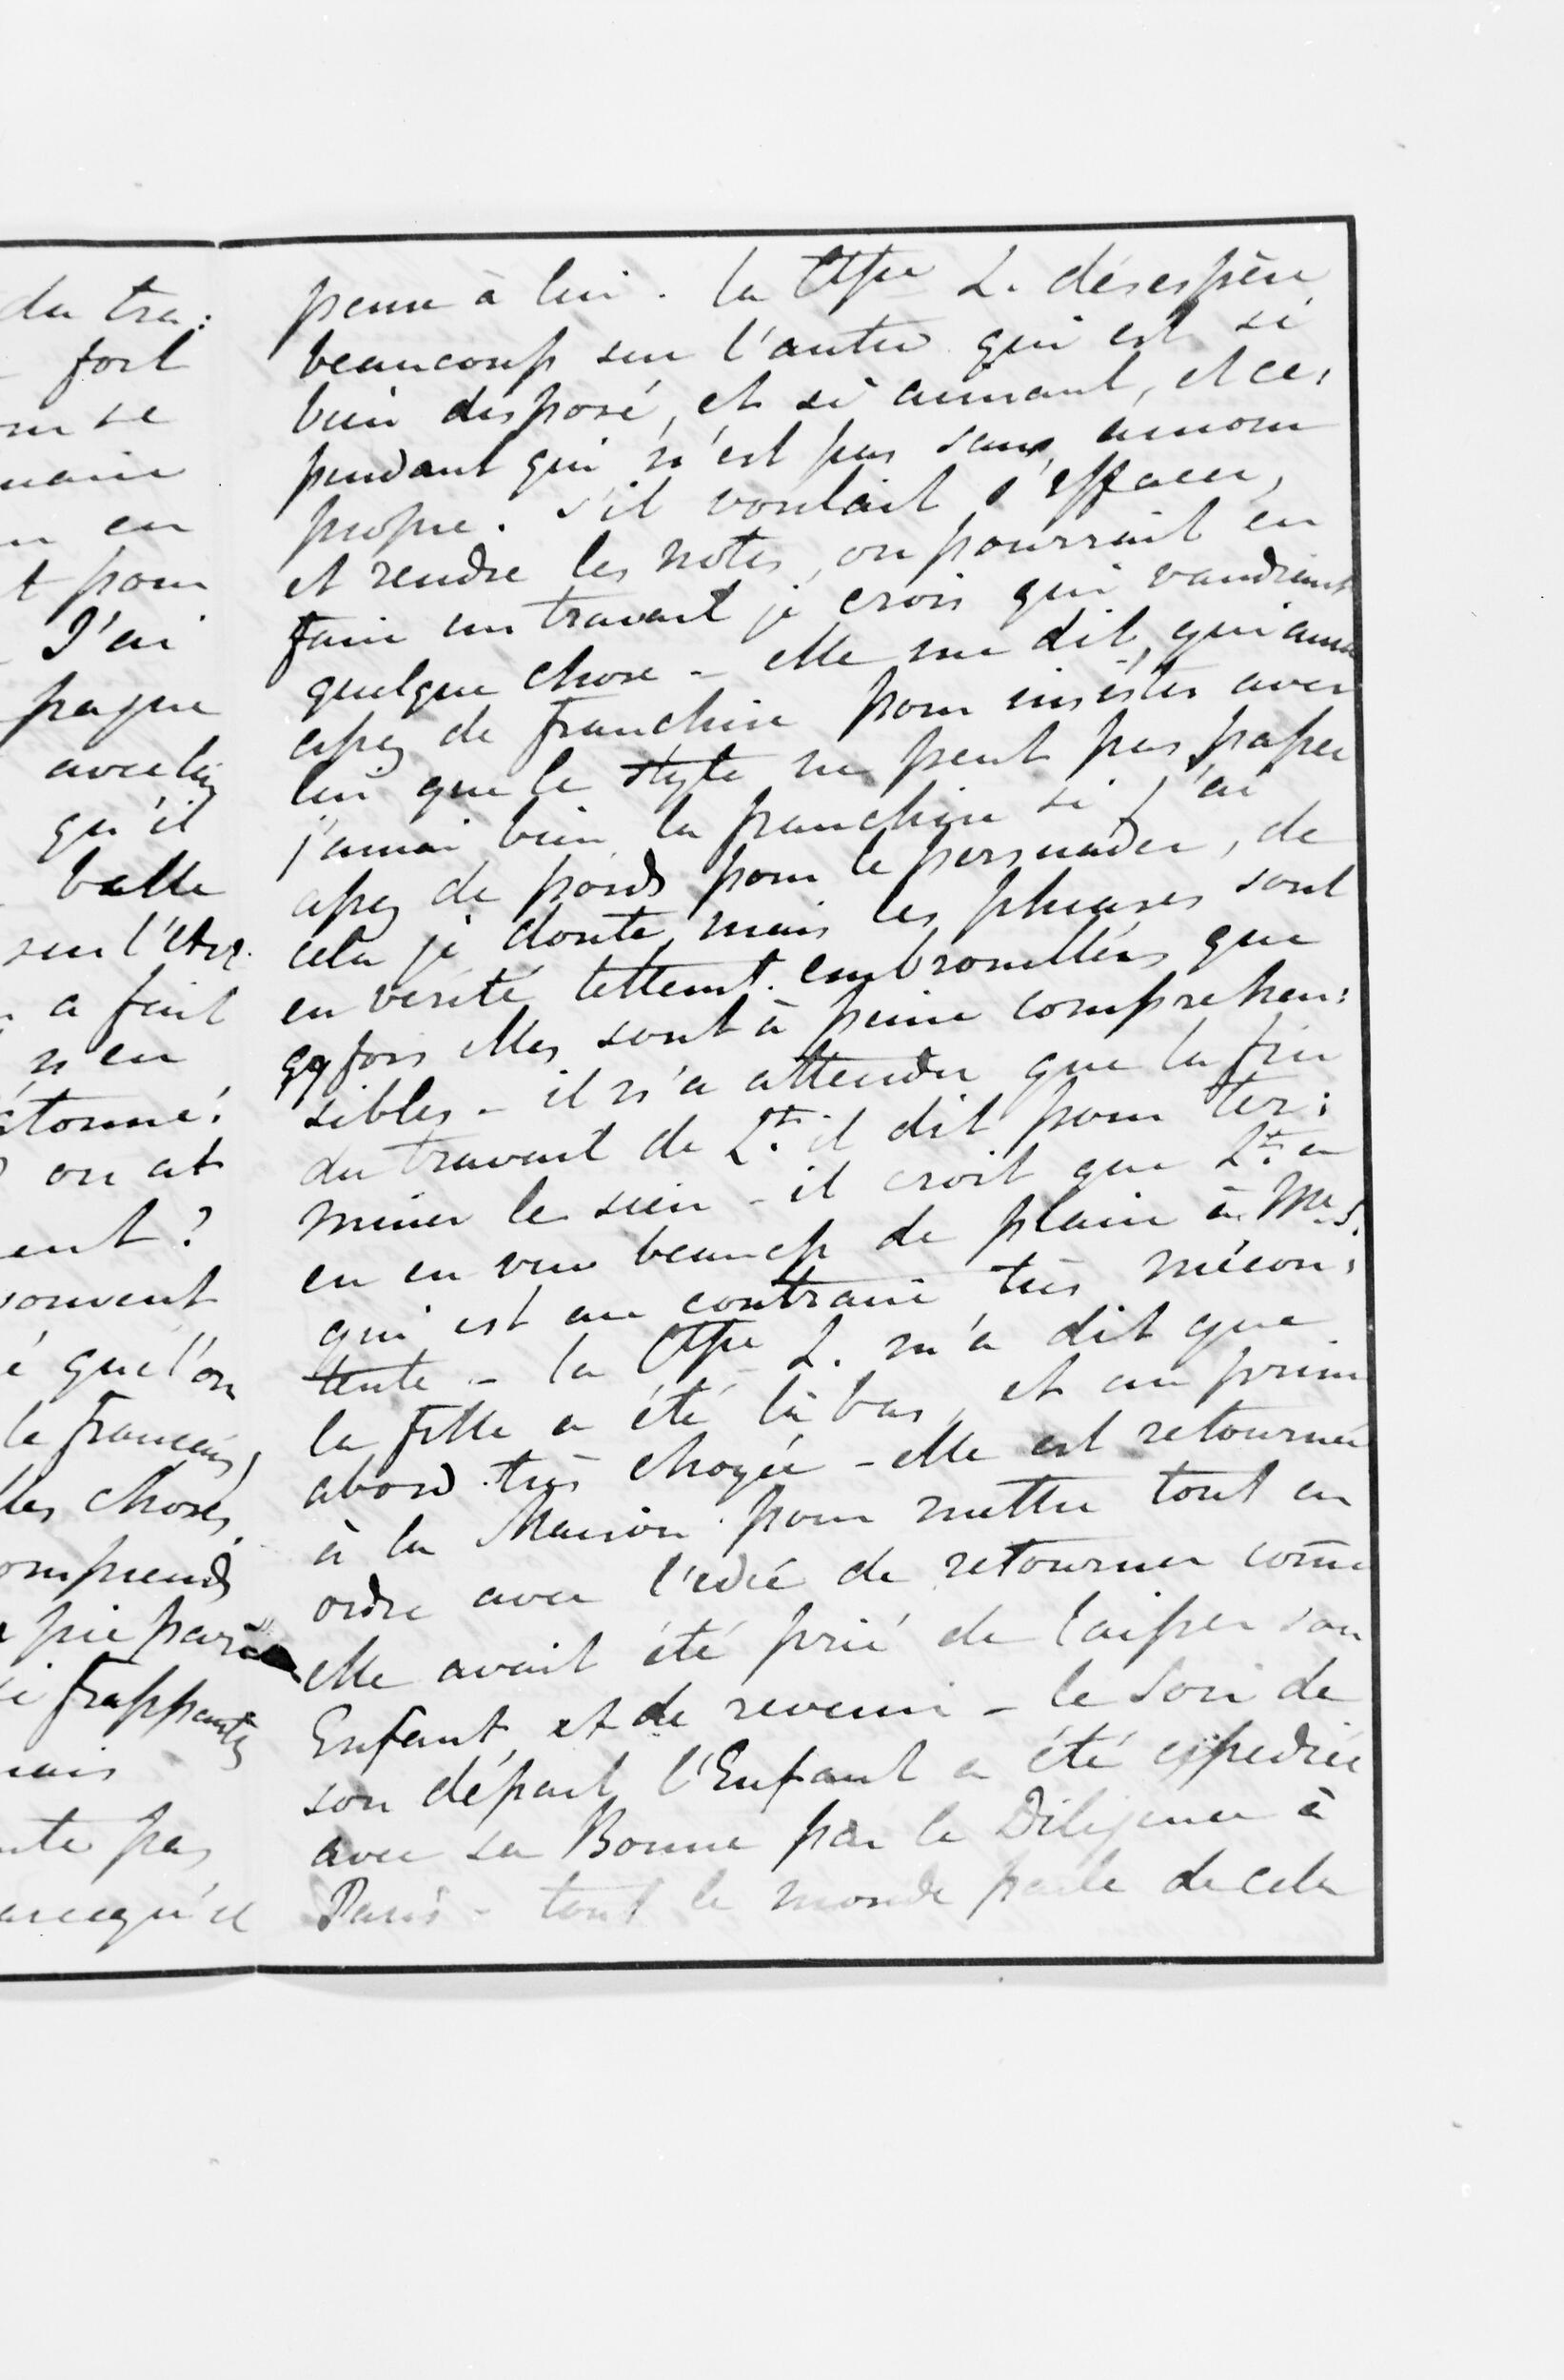 da tra:
fort
se
en
t pour
J'ai
pagne
avec lui
qu'il
balle
sur l'
a fait
n'en
étonné!
on at
ent?
souvent
é que l'on
le francais,
les choses,
omprends
si frappantes
nais
nte pas
arcequ'il
peur à lui. la Ctsse L. désespère
beaucoup sur l'autre qui est si
bien disposé, et si aimant, et ce:
pendant qui n'est pas sans amour
propre. s'il voulait s'effacer,
et rendre les notes, on pourrait en
faire un travail je crois qui vaudrait
quelque chose - elle me dit, qui aura
assez de franchise pour insister avec
lui que le style ne peut pas passer
j'aurai bien la franchise si j'ai
assez de poids pour le persuader, de
cela je doute, mais les phrases sont
en vérité tellemt. embrouillées que
qq fois elles sont à peine comprehen:
sibles - il n'a attendu que la fin
du travail de Lt. il dit pour ter:
miner le sien - il croit que Lt. a
en en vue beaucp de plaire à Me S.
qui est au contraire très mécon:
tente - la Ctsse L. m'a dit que
la fille a été là bas, et au prim
abord très choyée - elle est retournée
à la Maison pour mettre tout en
ordre avec l'idée de retourner com̄e
elle avait été prié de laisser son
Enfant et de revenir - le soir de
son départ l'Enfant a été expediée
avec sa Bonne par la Diligence à
Paris - tout le monde parle de cela